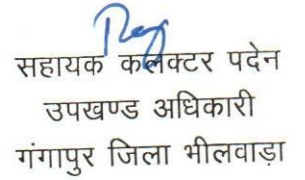 सहायक कलक्टर पदेन
उपखण्ड अधिकारी
गंगापुर जिला भीलवाड़ा